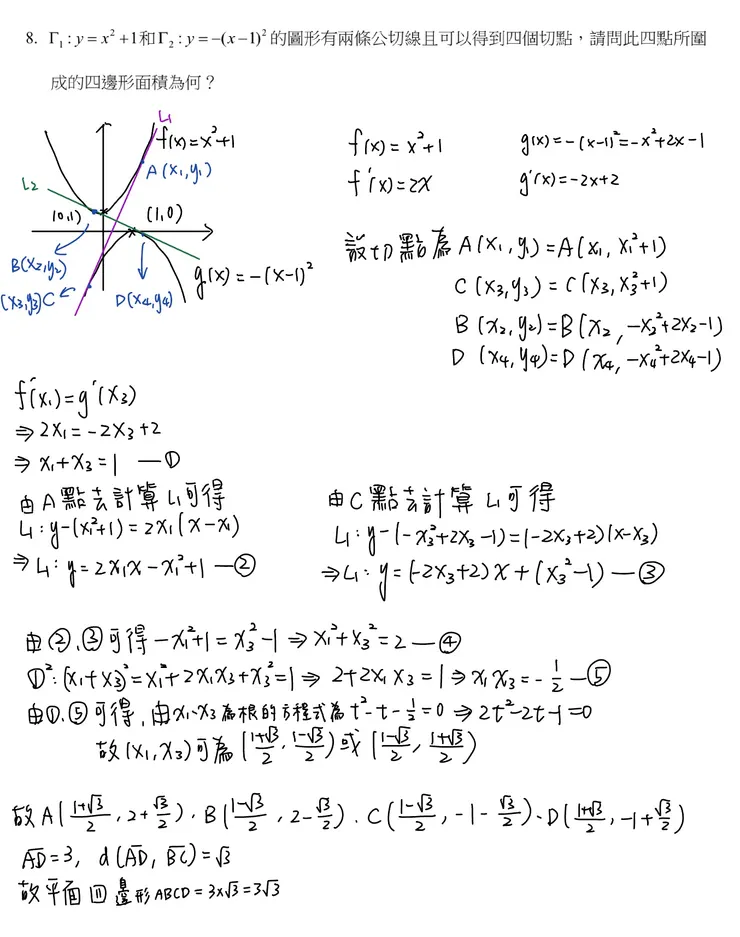 8. Γ₁ : y = x² + 1 和 Γ₂ : y = −(x−1)² 的圖形有兩條公切線且可以得到四個切點，請問此四點所圍
成的四邊形面積為何？
L₁
f(x)=x²+1
A(x₁,y₁)
L₂
(0,1)
(1,0)
B(x₂,y₂)
(x₃,y₃)C
D(x₄,y₄)
g(x)=-(x-1)²
f(x)=x²+1
g(x)=-(x-1)²=-x²+2x-1
f'(x)=2x
g'(x)=-2x+2
設切點為 A(x₁,y₁)=A(x₁, x₁²+1)
C(x₃,y₃)=C(x₃,x₃²+1)
B(x₂,y₂)=B(x₂,-x₂²+2x₂-1)
D(x₄,y₄)=D(x₄,-x₄²+2x₄-1)
f'(x₁)=g'(x₃)
⇒ 2x₁=-2x₃+2
⇒ x₁+x₃=1 —①
由A點去計算L₁可得
L₁:y-(x₁²+1)=2x₁(x-x₁)
⇒ L₁:y=2x₁x-x₁²+1 —②
由C點去計算L₁可得
L₁:y-(-x₃²+2x₃-1)=(-2x₃+2)(x-x₃)
⇒L₁:y=(-2x₃+2)x+(x₃²-1) —③
由②、③可得-x₁²+1=x₃²-1 ⇒ x₁²+x₃²=2 —④
①²:(x₁+x₃)²=x₁²+2x₁x₃+x₃²=1 ⇒ 2+2x₁x₃=1 ⇒ x₁x₃=-1/2 —⑤
由①、⑤可得,由x₁、x₃為根的方程式為t²-t-1/2=0 ⇒ 2t²-2t-1=0
故(x₁,x₃)可為((1+√3)/2,(1-√3)/2)或((1-√3)/2,(1+√3)/2)
故A((1+√3)/2,2+√3/2)、B((1-√3)/2,2-√3/2)、C((1-√3)/2,-1-√3/2)、D((1+√3)/2,-1+√3/2)
AD=3, d(AD,BC)=√3
故平面四邊形ABCD=3x√3=3√3